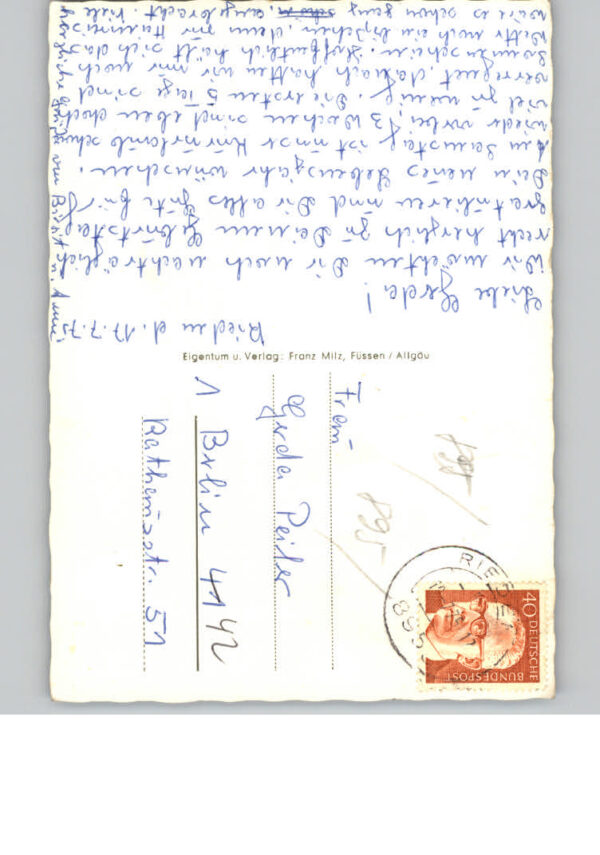 Rieden d. 17.7.73
Liebe Gerda!
Wir möchten Dir noch nachträglich
recht herzlich zu Deinem Geburtstag
gratulieren und Dir alles Gute für
Dein neues Lebensjahr wünschen.
Am Samstag ist unser Kurzurlaub schon
wieder vorbei, 3 Wochen sind eben doch
viel zu wenig. Die ersten 5 Tage sind
verregnet, danach hatten wir nur noch
Sonnenschein. Hoffentlich hält sich das
Wetter noch ein bißchen, denn
wäre es schon ganz angebracht Viele
herzliche Grüße von Birgit u. Anni
Eigentum u. Verlag: Franz Milz, Füssen / Allgäu
Frau
Gerda Peiler
1 Berlin 4142
Rathausstr. 51
895
895
40 DEUTSCHE
BUNDESPOST